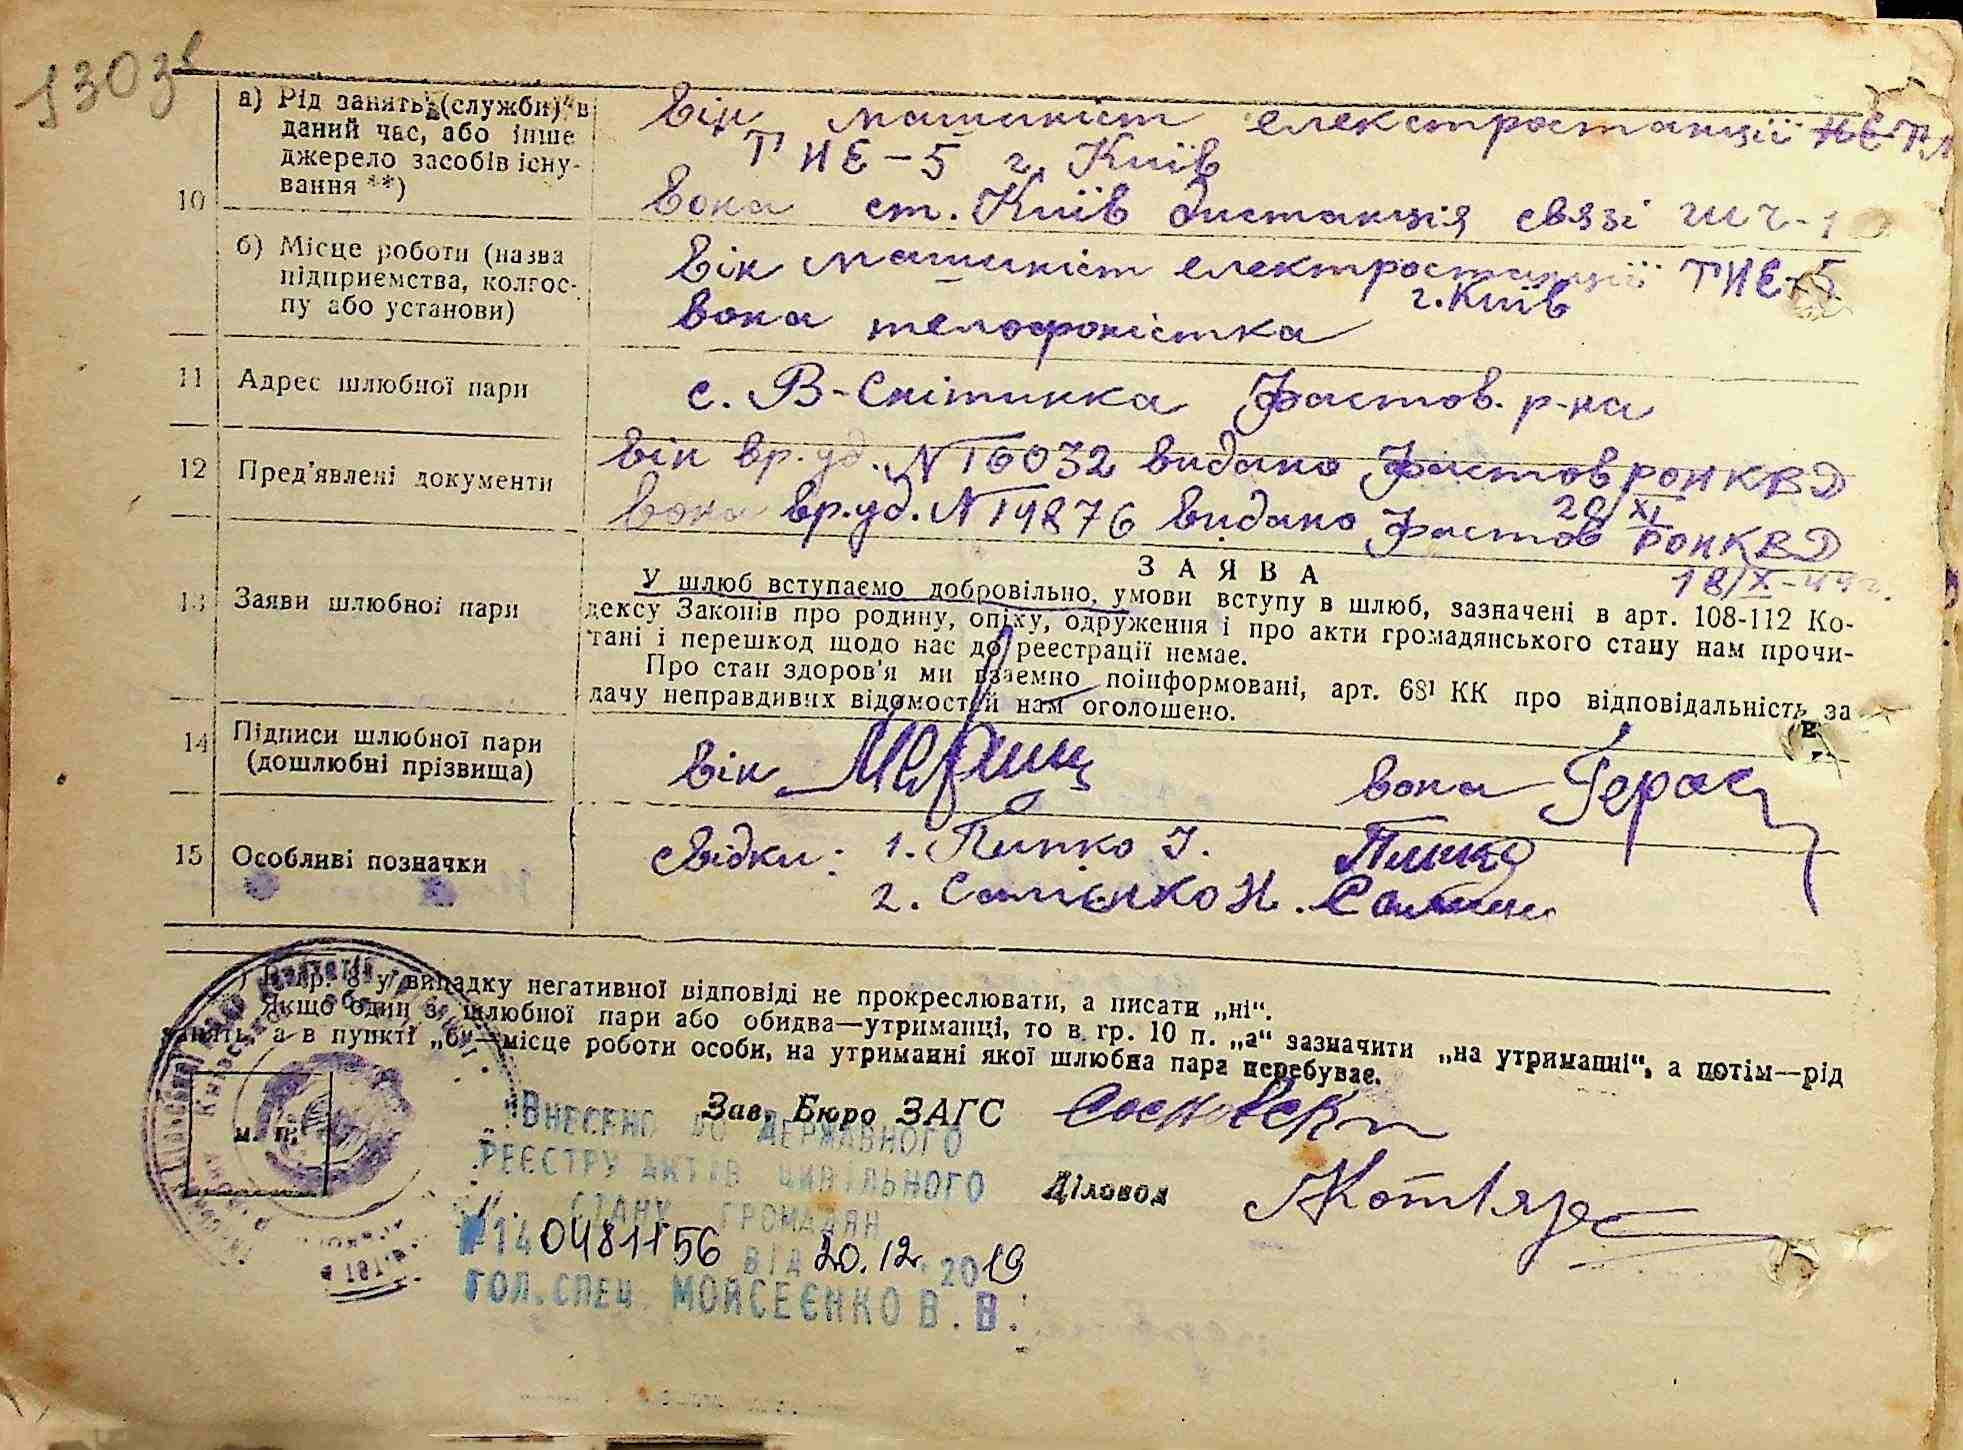 130зв
10
а) Рід занять (служби) в
даний час, або інше
джерело засобів існу-
вання **)
Він машиніст електростанції
ТИЕ-5 г. Київ
Вона ст. Київ дистанція связі ШЧ-1
б) Місце роботи (назва
підприємства, колгос-
пу або установи)
Він машиніст електростанції ТИЕ-5
г. Київ
Вона телофоністка
11 Адрес шлюбної пари
с. В-Снітинка Фастов. р-на
12 Пред'явлені документи
Він вр. уд. № 16032 видано Фастов РОНКВД
20/XI
Вона вр. уд. № 14876 видано Фастов РОНКВД
18/X-44г.
13 Заяви шлюбної пари
ЗАЯВА
У шлюб вступаємо добровільно, умови вступу в шлюб, зазначені в арт. 108-112 Ко-
дексу Законів про родину, опіку, одруження і про акти громадянського стану нам прочи-
тані і перешкод щодо нас до реестрації немає.
Про стан здоров'я ми взаємно поінформовані, арт. 68¹ КК про відповідальність за
дачу неправдивих відомостей нам оголошено.
14 Підписи шлюбної пари
(дошлюбні прізвища)
Він
Вона Герас
15 Особливі позначки
свідки: 1. Пипко І. Пипко
2. Самієнко Н.
*) В гр. 8 у випадку негативної відповіді не прокреслювати, а писати „ні“.
Якщо один з шлюбної пари або обидва—утриманці, то в гр. 10 п. „а“ зазначити „на утриманні“, а потім—рід
занять, а в пункті „б“—місце роботи особи, на утриманні якої шлюбна пара перебуває.
м. п.
Зав. Бюро ЗАГС
Діловод
ВНЕСЕНО ДО ДЕРЖАВНОГО
РЕЄСТРУ АКТІВ ЦИВІЛЬНОГО
СТАНУ ГРОМАДЯН
№ 140481156 ВІД 20.12.2019
ГОЛ. СПЕЦ. МОЙСЕЄНКО В. В.